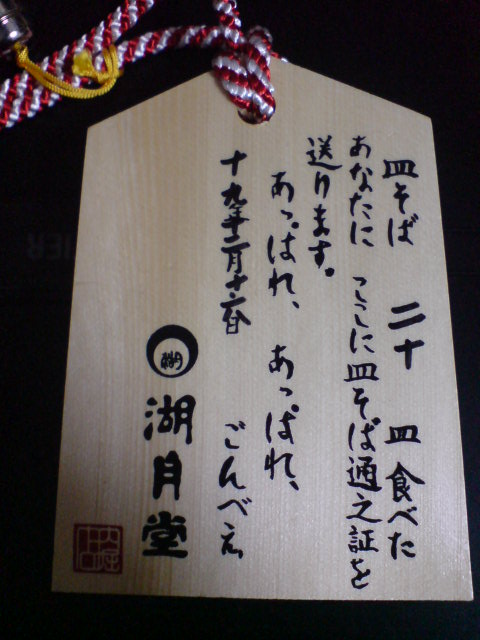 皿そば 二十 皿 食べた
あなたに ここに皿そば通之証を
送ります。
あっぱれ、あっぱれ、
十九年二月十六日 ごんべえ
湖
湖月堂